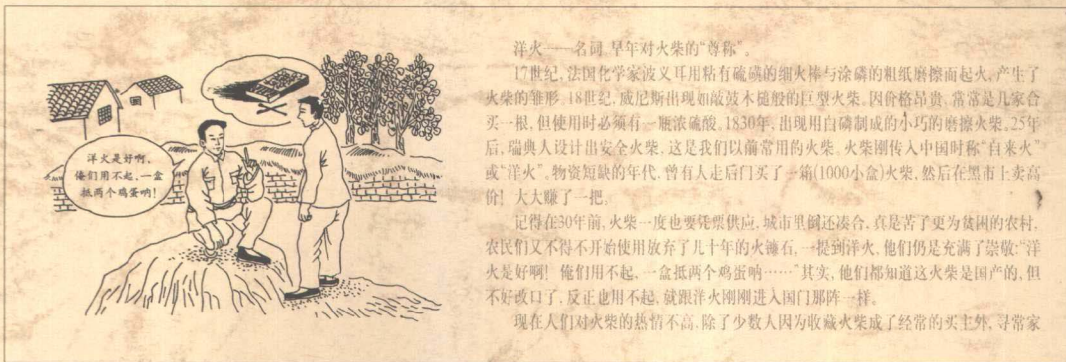 洋火是好啊,
俺们用不起,一盒
抵两个鸡蛋呐!
洋火——名词,早年对火柴的“尊称”。
17世纪,法国化学家波义耳用粘有硫磺的细火棒与涂磷的粗纸磨擦而起火,产生了
火柴的雏形。18世纪,威尼斯出现如敲鼓木槌般的巨型火柴。因价格昂贵,常常是几家合
买一根,但使用时必须有一瓶浓硫酸。1830年,出现用白磷制成的小巧的磨擦火柴。25年
后,瑞典人设计出安全火柴,这是我们以前常用的火柴。火柴刚传入中国时称“自来火”
或“洋火”,物资短缺的年代,曾有人走后门买了一箱(1000小盒)火柴,然后在黑市上卖高
价!大大赚了一把。
记得在30年前,火柴一度也要凭票供应,城市里倒还凑合,真是苦了更为贫困的农村,
农民们又不得不开始使用放弃了几十年的火镰石,一提到洋火,他们仍是充满了崇敬:“洋
火是好啊!俺们用不起,一盒抵两个鸡蛋呐……”其实,他们都知道这火柴是国产的,但
不好改口了,反正也用不起,就跟洋火刚刚进入国门那阵一样。
现在人们对火柴的热情不高,除了少数人因为收藏火柴成了经常的买主外,寻常家